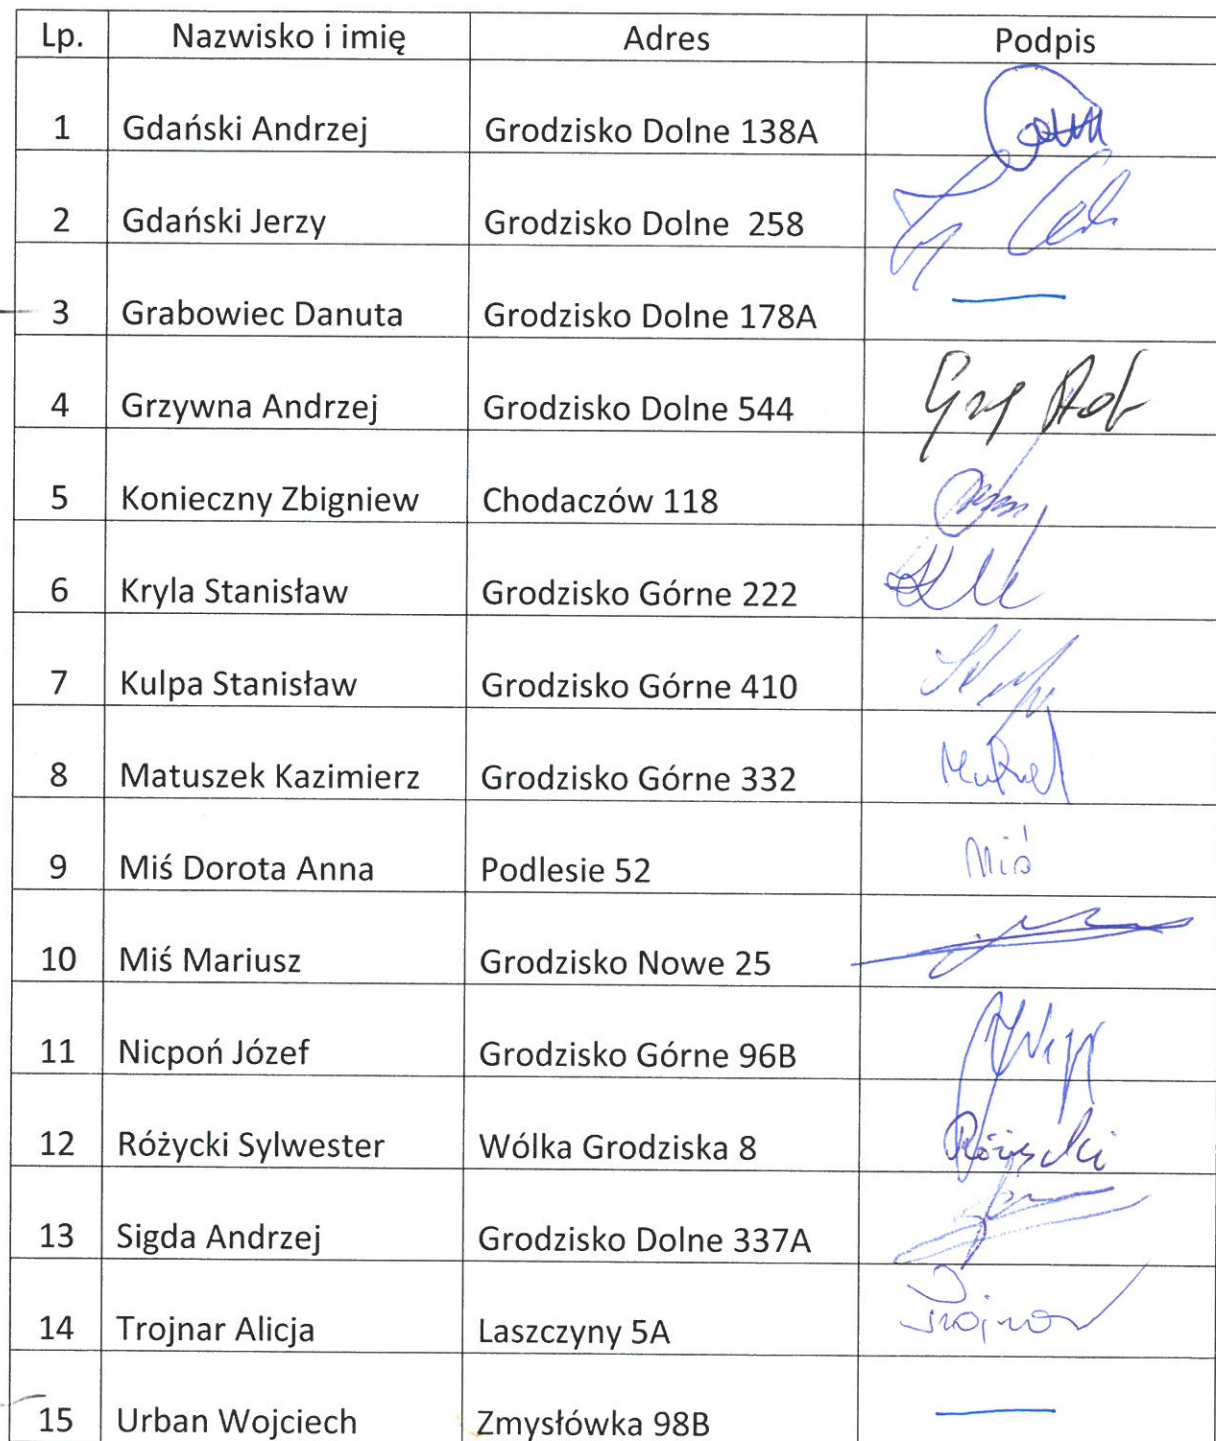 Lp. Nazwisko i imię Adres Podpis
1 Gdański Andrzej Grodzisko Dolne 138A
2 Gdański Jerzy Grodzisko Dolne 258
3 Grabowiec Danuta Grodzisko Dolne 178A
4 Grzywna Andrzej Grodzisko Dolne 544
5 Konieczny Zbigniew Chodaczów 118
6 Kryla Stanisław Grodzisko Górne 222
7 Kulpa Stanisław Grodzisko Górne 410
8 Matuszek Kazimierz Grodzisko Górne 332
9 Miś Dorota Anna Podlesie 52 Miś
10 Miś Mariusz Grodzisko Nowe 25
11 Nicpoń Józef Grodzisko Górne 96B
12 Różycki Sylwester Wólka Grodziska 8 Różycki
13 Sigda Andrzej Grodzisko Dolne 337A
14 Trojnar Alicja Laszczyny 5A Trojnar
15 Urban Wojciech Zmysłówka 98B